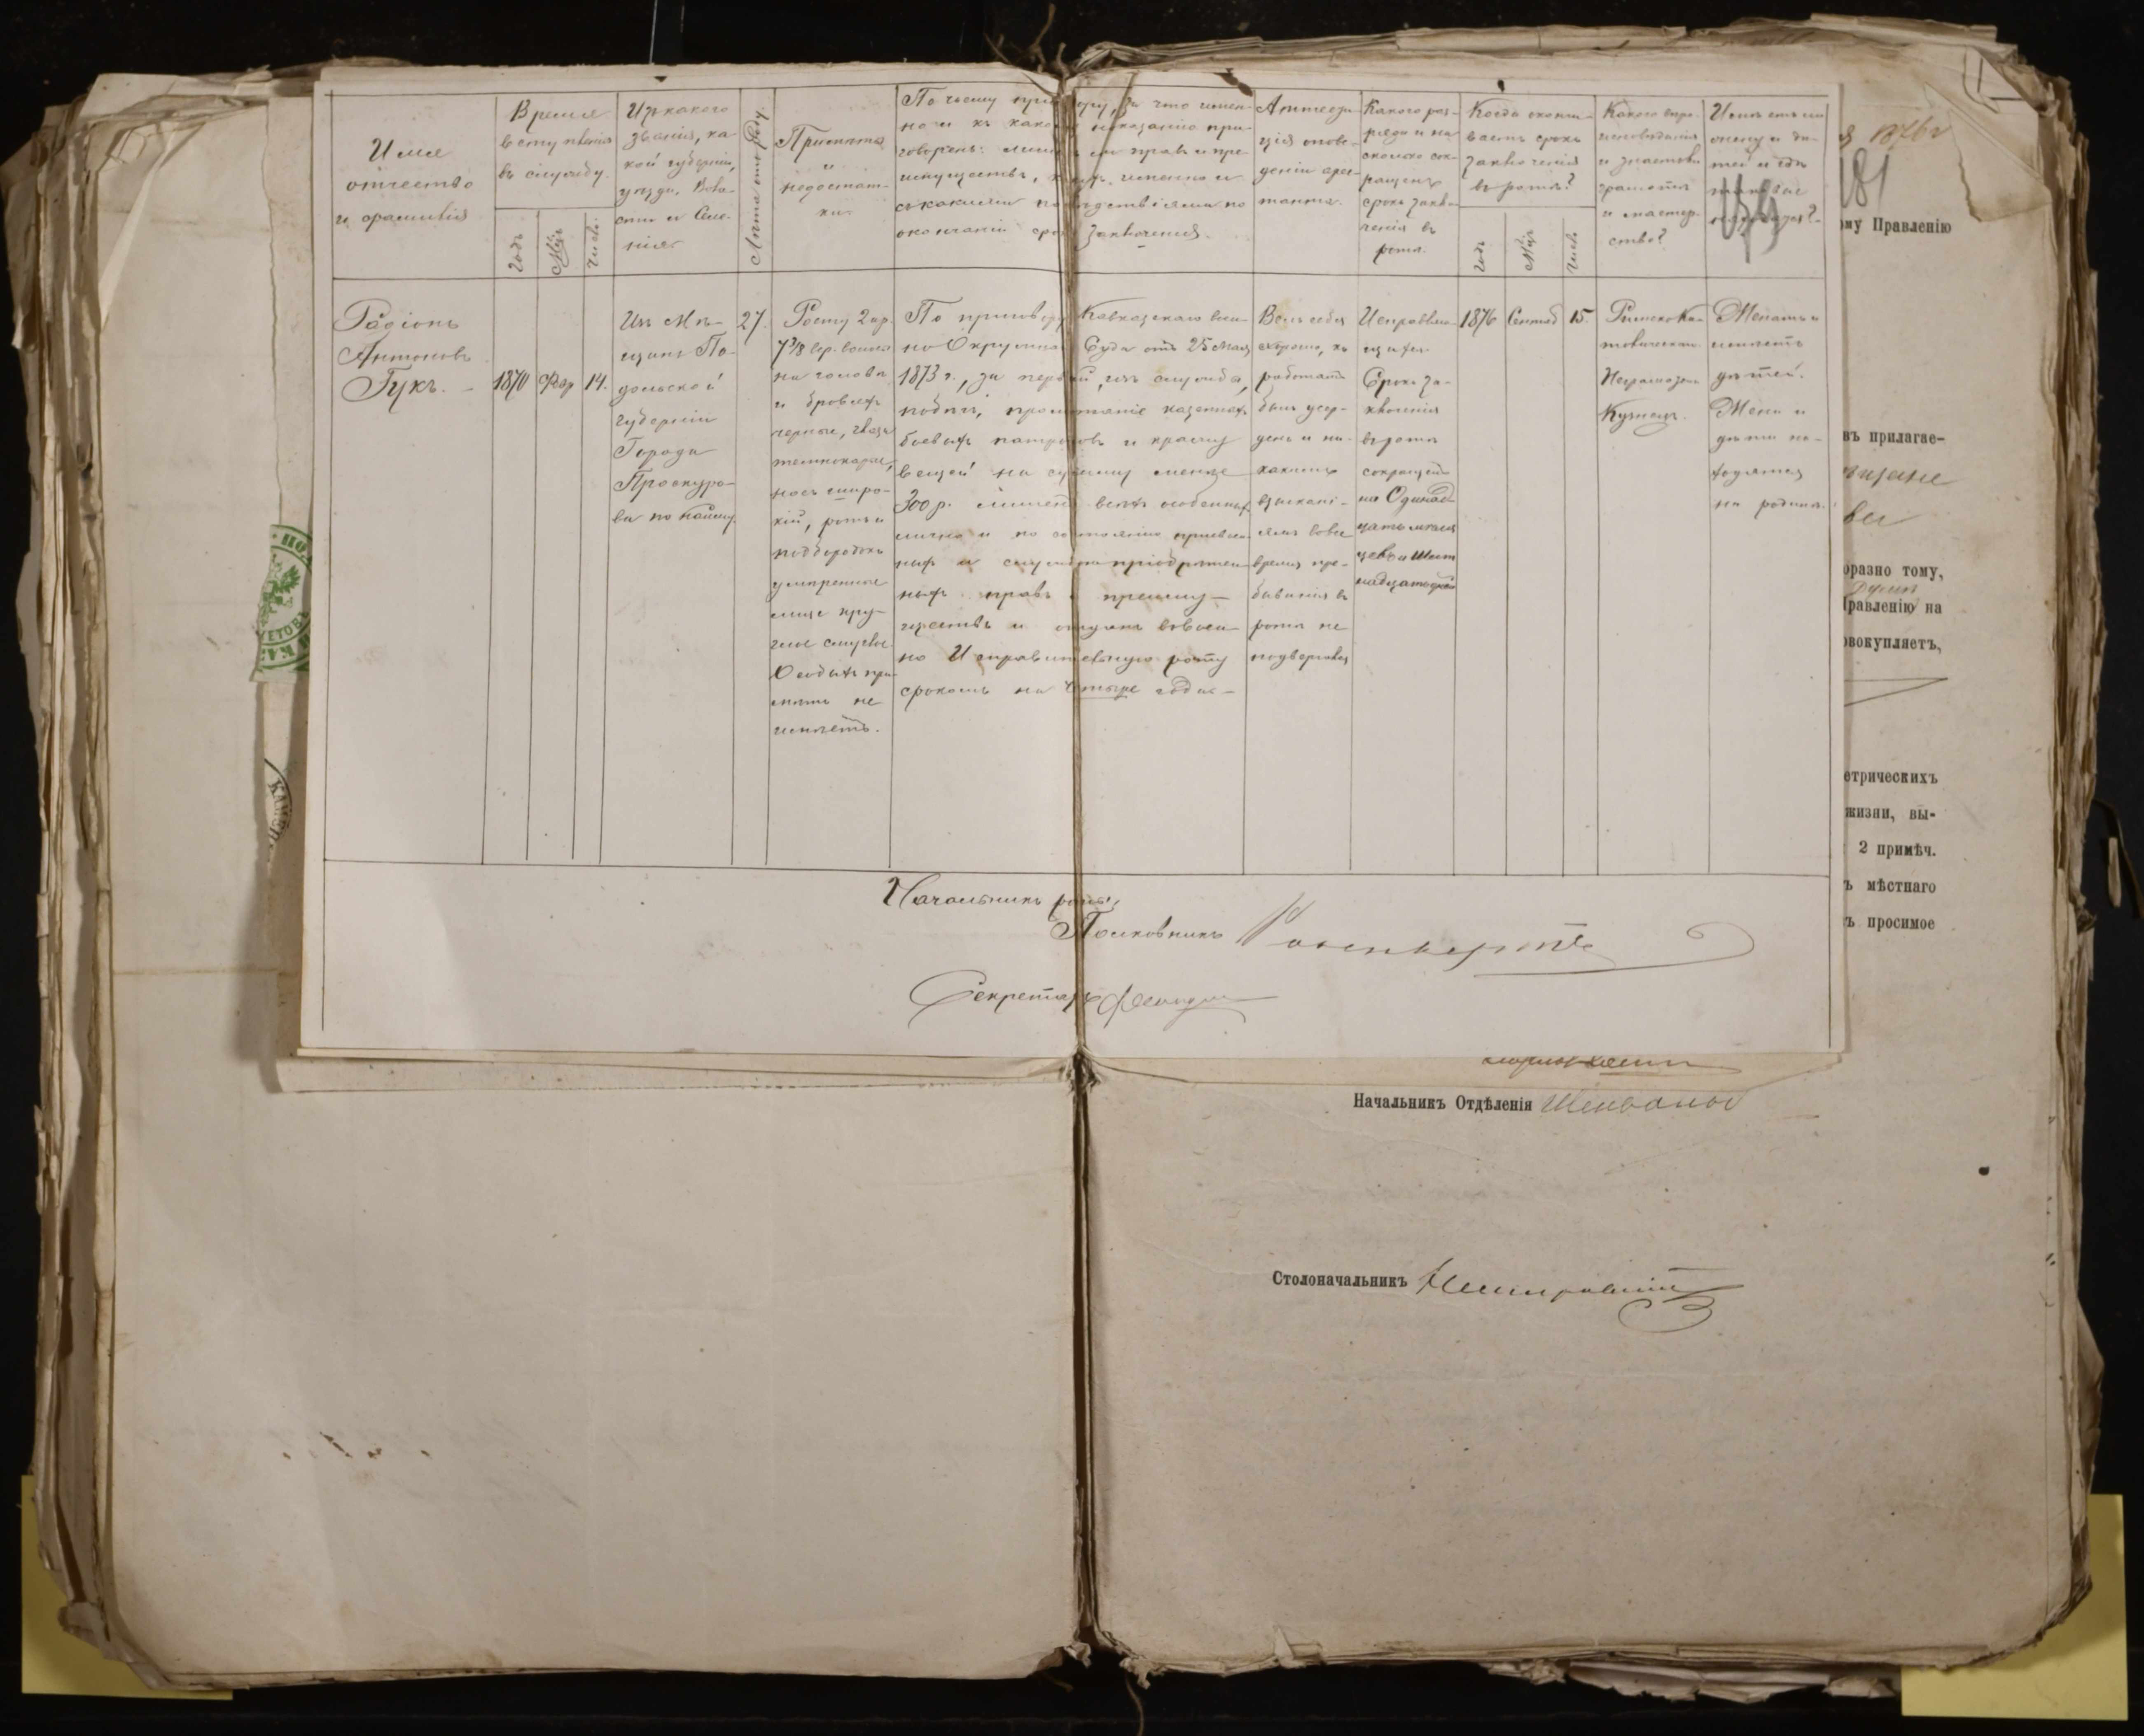 Имя
отчество
и фамилія
Время
вступленія
въ службу.
годъ
Мѣс.
число.
Изъ какого
званія, ка-
кой губерніи,
уѣзда, Воло-
сти и Селе-
нія
Лѣта отъ роду
Примѣты
и
недостат-
ки
По чьему приговору, за что имен-
но и къ какому наказанію при-
говоренъ: лишенъ ли правъ и пре-
имуществъ, какихъ именно и
съ какими послѣдствіями по
окончаніи срока заключенія.
Аттеста-
ція о пове-
деніи арес-
танта.
Какого раз-
ряда и на
сколько сок-
ращенъ
срокъ заклю-
ченія въ
ротѣ.
Когда оконч-
ваетъ срокъ
заключенія
въ ротѣ?
годъ
Мѣс.
число
Какого вѣро-
исповѣданія
и знаетъ ли
грамотѣ
и мастер-
ство?
Имѣетъ ли
жену и дѣ-
тей и гдѣ
таковые
находятся?
Радіонъ
Антоновъ
Гукъ. –
1870
Фвр
14.
Изъ Мѣ-
щанъ По-
дольской
губерніи
Города
Проскуро-
ва по найму.
27.
Росту 2 ар.
7 3/8 вер. волоса
на головѣ
и бровяхъ
черные, глаза
темнокаріе,
носъ широ-
кій, ротъ и
подбородокъ
умѣренные
лице кру-
глое смуглое
Особыхъ при-
мѣтъ не
имѣетъ.
По приговору Кавказскаго Воен-
но Окружнаго Суда отъ 25 Мая
1873 г., за первый, изъ службы,
побѣгъ, промотаніе казенныхъ
боевыхъ патроновъ и кражу
вещей на сумму менѣе
300 р. лишенъ всѣхъ особенныхъ
лично и по состоянію присвоен-
ныхъ и службою пріобрѣтен-
ныхъ правъ и преиму-
ществъ и отданъ въ Воен-
но Исправительную роту
срокомъ на четыре года –
Велъ себя
хорошо, къ
работамъ
былъ усер-
денъ и ни-
какимъ
взыскані-
ямъ во все
время пре-
быванія въ
ротѣ не
подвергался
Исправляю-
щихся
Срокъ за-
ключенія
въ ротѣ
сокращенъ
на Одинад-
цать мѣся-
цевъ и Шест
надцать дней
1876
Сентяб
15.
Римско Ка-
толическаго.
Неграмотенъ
Кузнецъ.
Женатъ и
имѣетъ
дѣтей.
Жена и
дѣти на-
ходятся
на родинѣ.
Начальникъ роты,
Полковникъ
Секретарь
1876 г
181
ому Правленію
въ прилагае-
образно тому,
Правленію на
овокупляетъ,
етрическихъ
жизни, вы-
2 примѣч.
ъ мѣстнаго
ъ просимое
Начальникъ Отдѣленія
Столоначальникъ